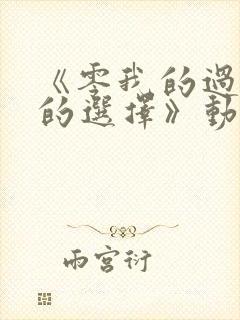 《零我的過
的選擇》動
雨宮衍